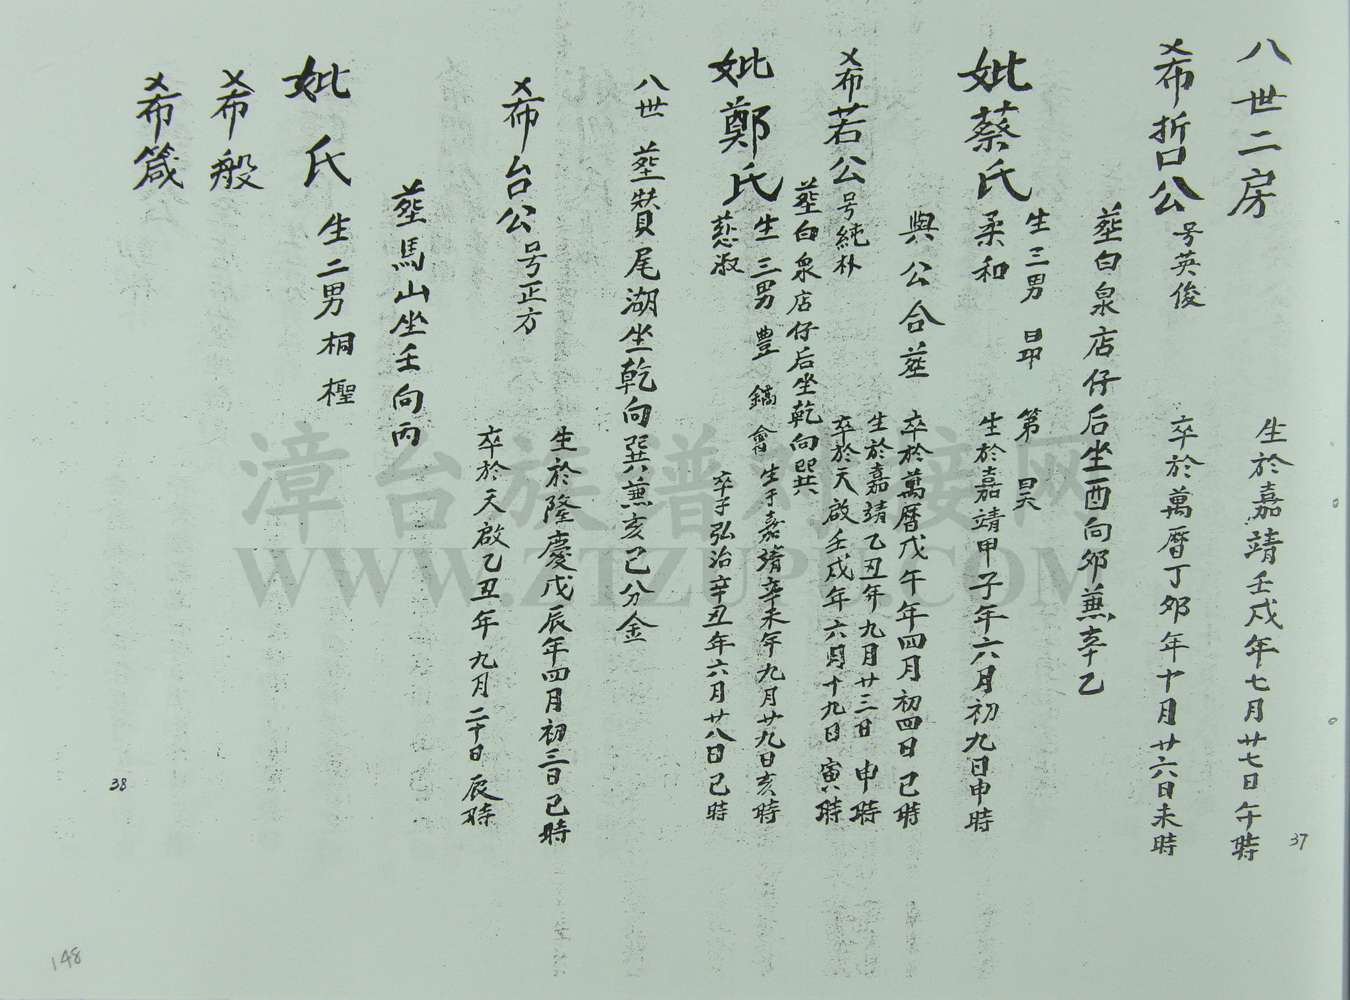 八世二房
生於嘉靖壬戌年七月廿七日午時
希哲公号英俊
卒於萬曆丁卯年十月廿六日未時
塟白泉店仔后坐酉向卯兼辛乙
妣蔡氏柔和
生三男 昴 第 昊
生於嘉靖甲子年六月初九日申時
與公合塟
卒於萬曆戊午年四月初四日巳時
希若公号純朴
生於嘉靖乙丑年九月廿三日申時
卒於天啟壬戌年六月十九日寅時
塟白泉店仔后坐乾向巽
妣鄭氏慈淑
生三男 豊 鎬 會
生于嘉靖辛未年九月廿九日亥時
卒于弘治辛丑年六月廿八日巳時
八世 塟賛尾湖坐乾向巽兼亥巳分金
希台公号正方
生於隆慶戊辰年四月初三日巳時
卒於天啟乙丑年九月二十日辰時
塟馬山坐壬向丙
妣 氏 生二男 桐 檉
希般
希箴
37
38
148
漳台族谱对接网
WWW.ZTZUPU.COM